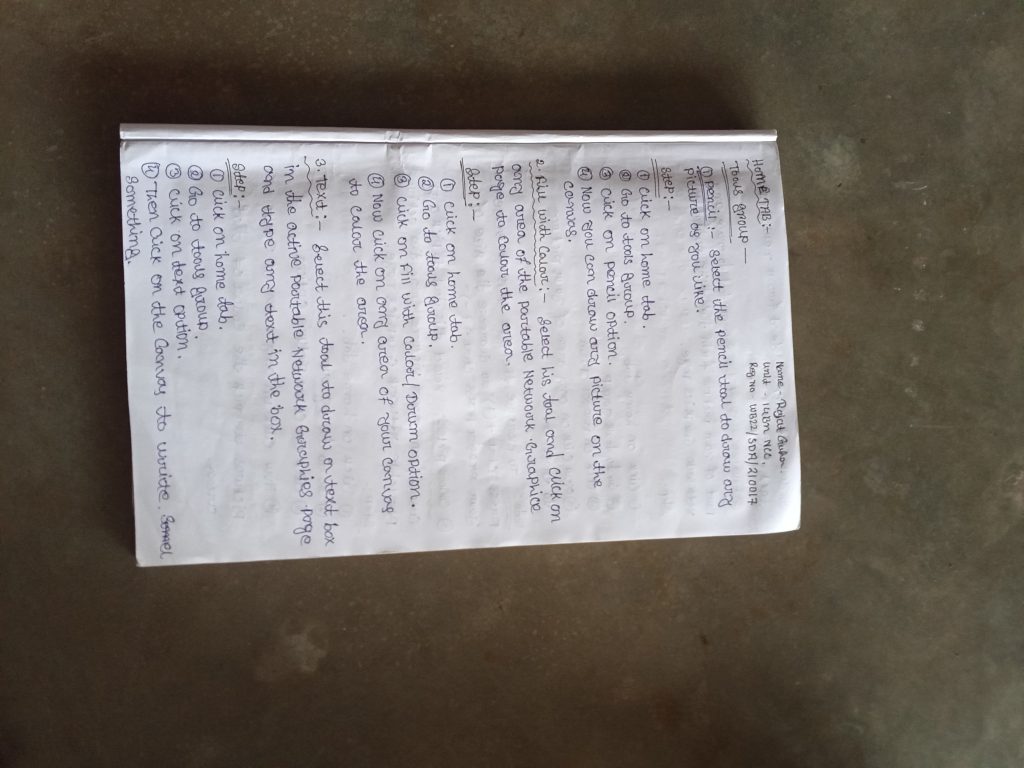 Name - Rajat Gupta.
Unit - 14Bn NCC.
Reg no WB22/SDA/210017
HOME TAB:-
Tools group —
① Pencil :- Select the pencil tool to draw any
picture as you like.
Step:-
① Click on home tab.
② Go to tools group.
③ Click on pencil option.
④ Now you can draw any picture on the
canvas.
2. Fill with Colour:- Select his tool and click on
any area of the Portable Network Graphice
page to colour the area.
Step:-
① Click on home tab.
② Go to tools group.
③ Click on Fill with Colour/Drum option.
④ Now click on any area of your canvas
to color the area.
3. Text:- Select this tool to draw a text box
in the active portable Network Graphics page
and type any text in the box.
Step:-
① Click on home tab.
② Go to tools group.
③ Click on text option.
④ Then click on the Canvas to write.
Something.